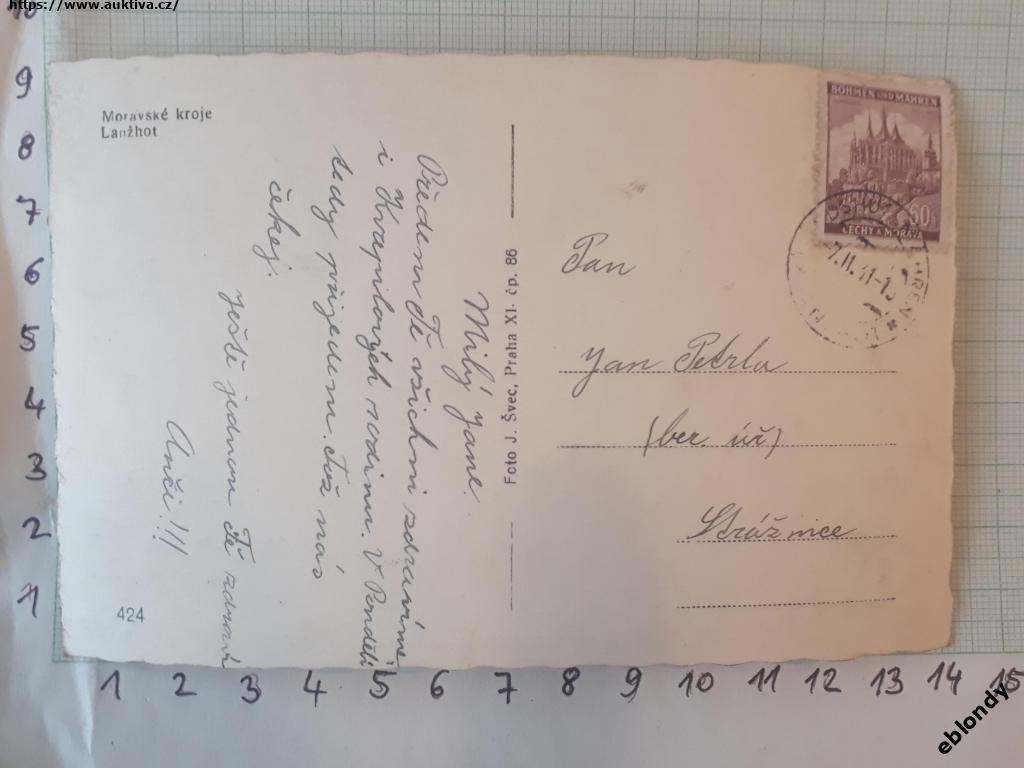 https://www.auktiva.cz/
Moravské kroje
Lanžhot
Milý Jane.
Předem Tě všichni zdravíme
i Kvapilových rodinu. V Pondělí
tedy přijedem. Tuž nás
čekej.
Ještě jednou Tě zdraví
Anči!!!
424
Foto J. Švec, Praha XI. čp. 86
BÖHMEN UND MÄHREN
60
ČECHY A MORAVA
Pan
Jan Petrla
(ber. úř)
Strážnice
10
9
8
7
6
5
4
3
2
1
1 2 3 4 5 6 7 8 9 10 11 12 13 14 15
eblondy